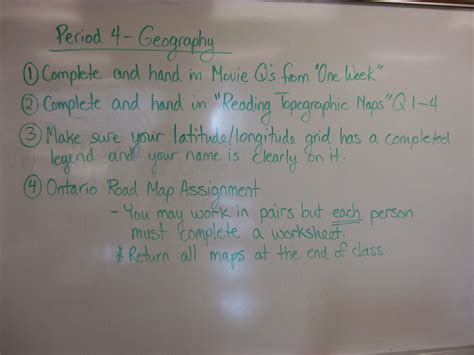 Period 4 - Geography
① Complete and hand in Movie Q's from "One Week"
② Complete and hand in "Reading Topographic Maps" Q 1-4
③ Make sure your latitude/longitude grid has a completed
legend and your name is clearly on it.
④ Ontario Road Map Assignment
- You may work in pairs but each person
must complete a worksheet.
* Return all maps at the end of class.